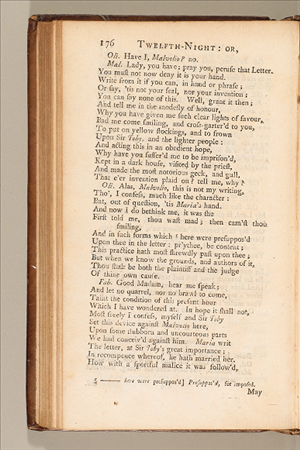 176 TWELFTH-NIGHT: OR,
Oli. Have I, Malvolio? no.
Mal. Lady, you have; pray you, peruse that Letter.
You must not now deny it is your hand.
Write from it if you can, in hand or phrase;
Or say, 'tis not your seal, nor your invention;
You can say none of this. Well, grant it then;
And tell me in the modesty of honour,
Why you have given me such clear lights of favour,
Bad me come smiling, and cross-garter'd to you,
To put on yellow stockings, and to frown
Upon Sir Toby, and the lighter people:
And acting this in an obedient hope,
Why have you suffer'd me to be imprison'd,
Kept in a dark house, visited by the priest,
And made the most notorious geck, and gull,
That e'er invention plaid on? tell me, why?
Oli. Alas, Malvolio, this is not my writing,
Tho', I confess, much like the character:
But, out of question, 'tis Maria's hand.
And now I do bethink me, it was she
First told me, thou wast mad; then cam'st thou
smiling,
And in such forms which here were presuppos'd
Upon thee in the letter: pr'ythee, be content;
This practice hath most shrewdly past upon thee;
But when we know the grounds, and authors of it,
Thou shalt be both the plaintiff and the judge
Of thine own cause.
Fab. Good Madam, hear me speak;
And let no quarrel, nor no brawl to come,
Taint the condition of this present hour
Which I have wondered at. In hope it shall not,
Most freely I confess, myself and Sir Toby
Set this device against Malvolio here,
Upon some stubborn and uncourteous parts
We had conceiv'd against him. Maria writ
The letter, at Sir Toby's great importance;
In recompence whereof, he hath married her.
How with a sportful malice it was follow'd,
here were presuppos'd] Presuppos'd, for imposed.
May